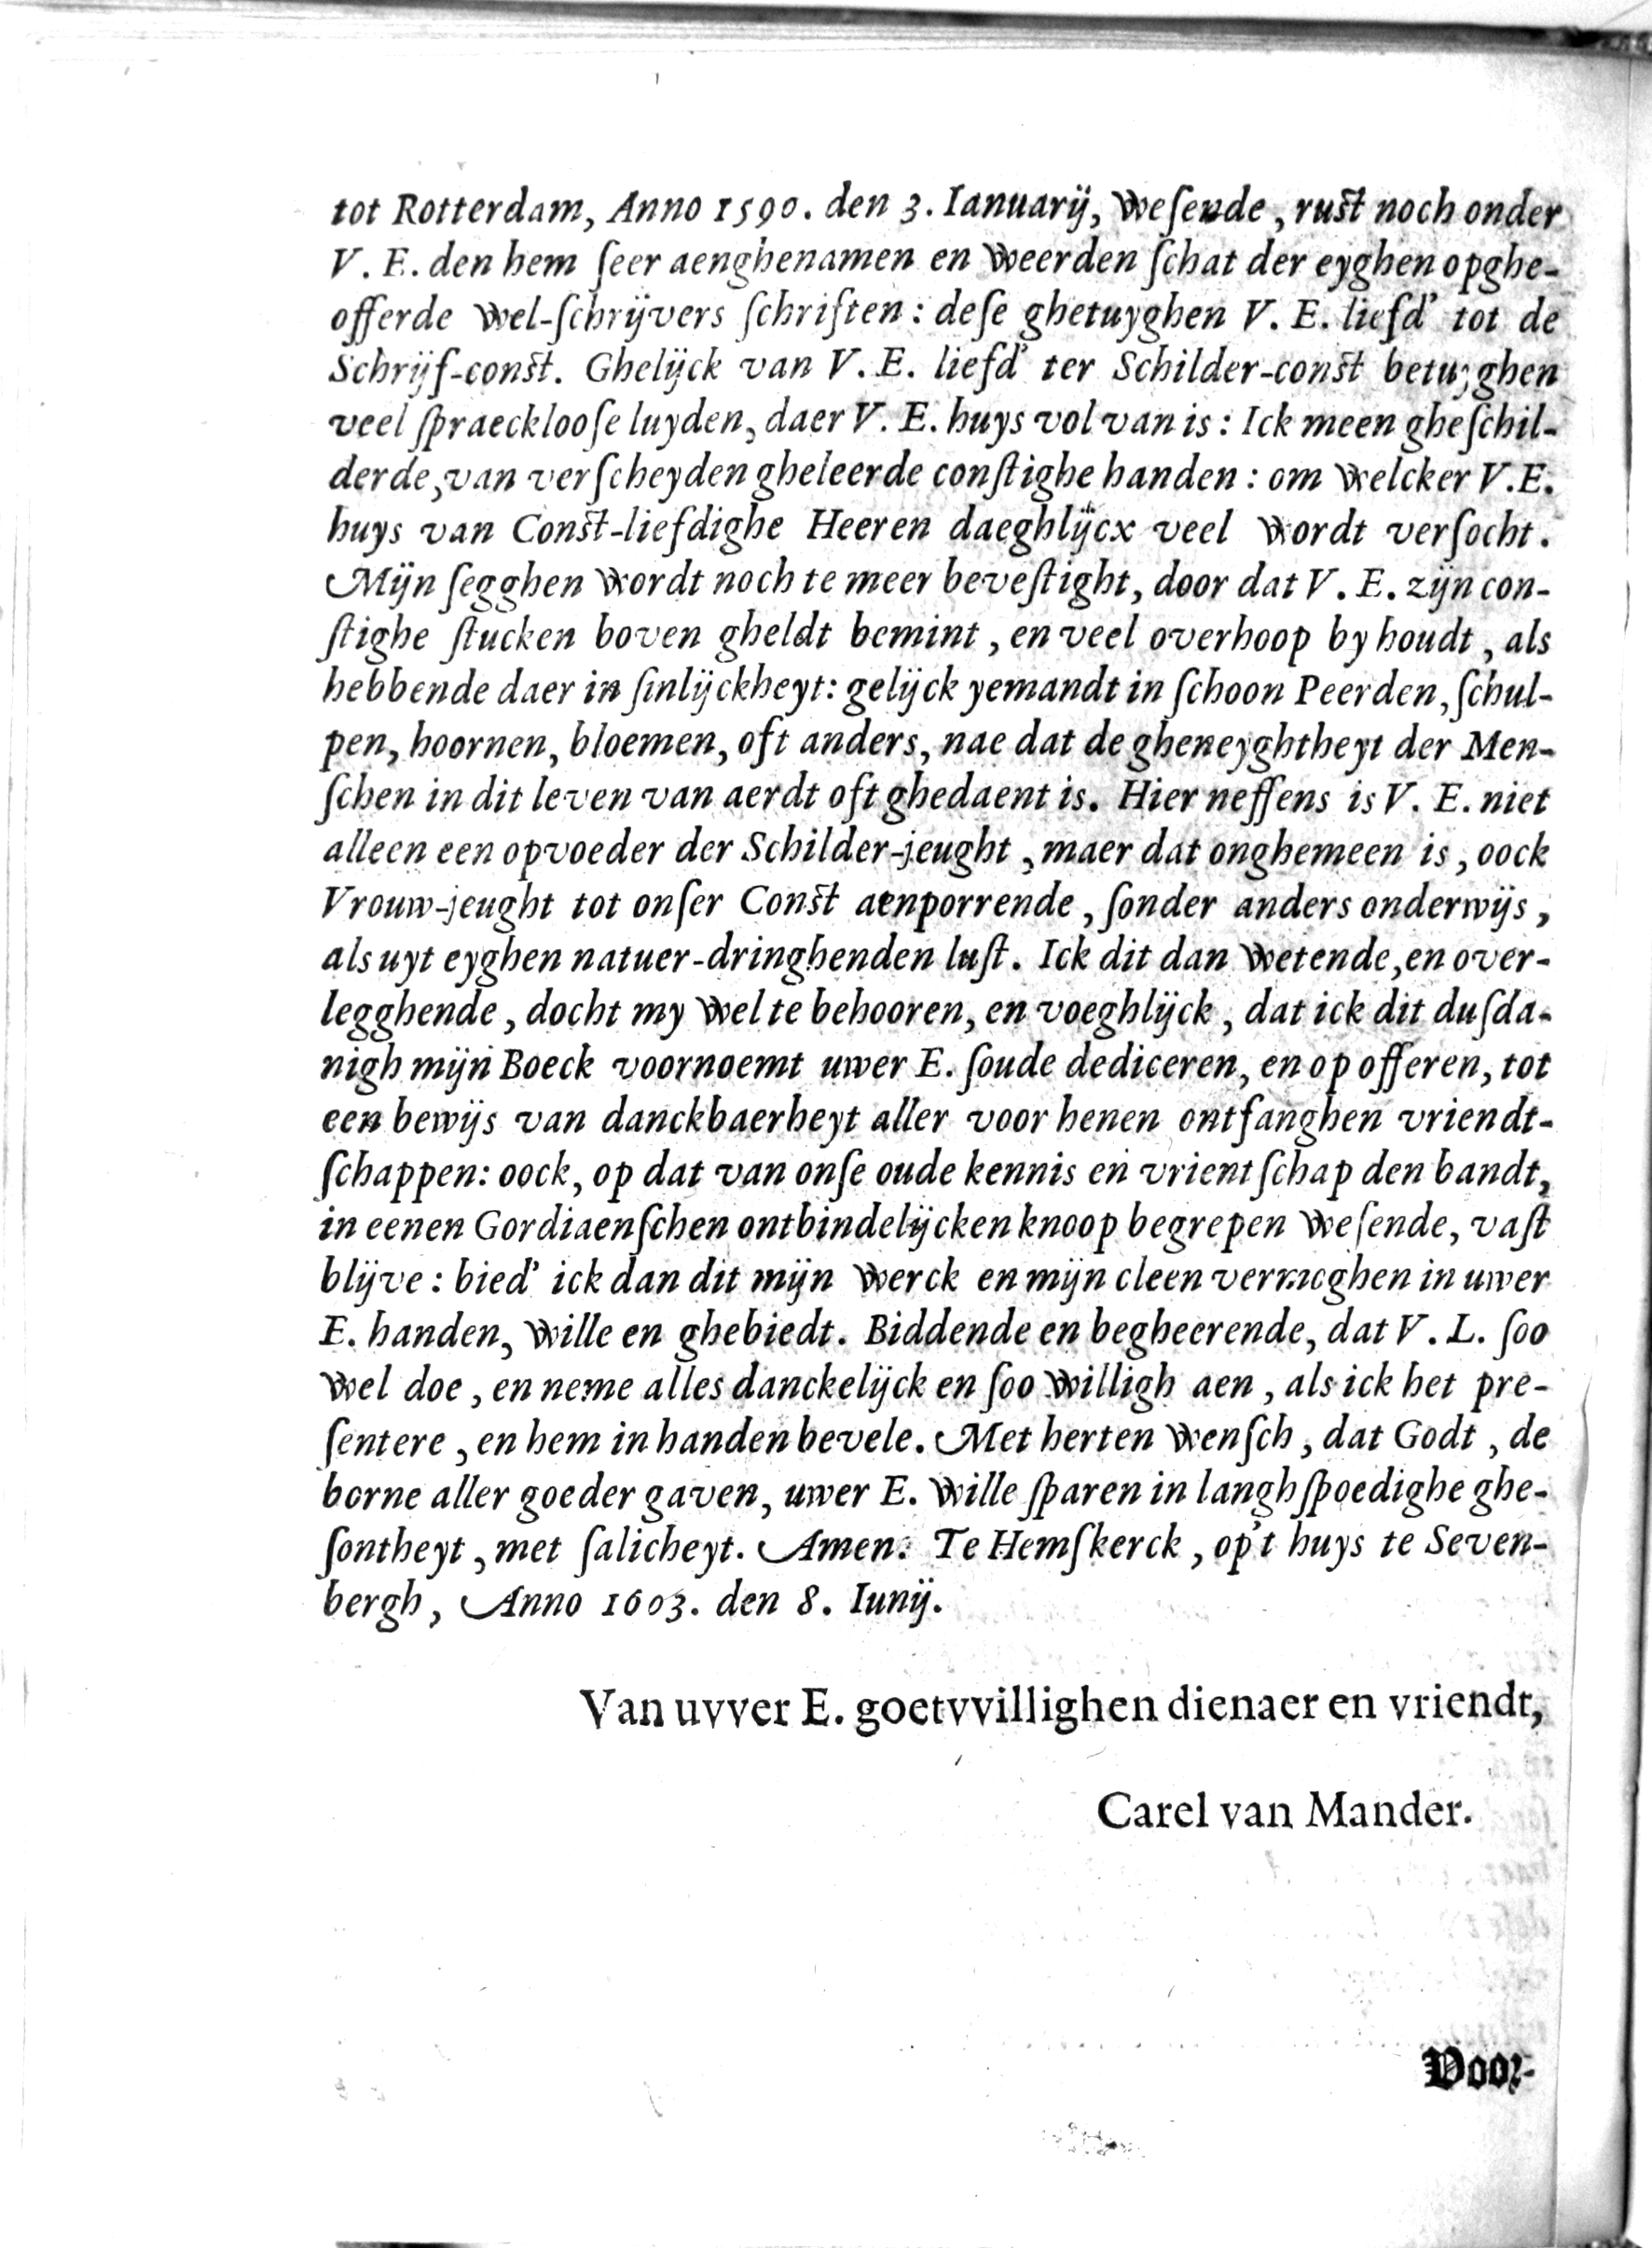 tot Rotterdam, Anno 1590. den 3. Ianuarij, weſende, ruſt noch onder
V. E. den hem ſeer aenghenamen en weerden ſchat der eyghen opghe-
offerde wel-ſchrijvers ſchriften: deſe ghetuyghen V. E. liefd' tot de
Schrijf-conſt. Ghelijck van V. E. liefd' ter Schilder-conſt betuyghen
veel ſpraecklooſe luyden, daer V. E. huys vol van is: Ick meen gheſchil-
derde, van verſcheyden gheleerde conſtighe handen: om welcker V. E.
huys van Conſt-liefdighe Heeren daeghlijcx veel wordt verſocht.
Mijn ſegghen wordt noch te meer beveſtight, door dat V. E. zijn con-
ſtighe ſtucken boven gheldt bemint, en veel overhoop by houdt, als
hebbende daer in ſinlijckheyt: gelijck yemandt in ſchoon Peerden, ſchul-
pen, hoornen, bloemen, oft anders, nae dat de gheneyghtheyt der Men-
ſchen in dit leven van aerdt oft ghedaent is. Hier neffens is V. E. niet
alleen een opvoeder der Schilder-jeught, maer dat onghemeen is, oock
Vrouw-jeught tot onſer Conſt aenporrende, ſonder anders onderwijs,
als uyt eyghen natuer-dringhenden luſt. Ick dit dan wetende, en over-
legghende, docht my wel te behooren, en voeghlijck, dat ick dit duſda-
nigh mijn Boeck voornoemt uwer E. ſoude dediceren, en op offeren, tot
een bewijs van danckbaerheyt aller voor henen ontfanghen vriendt-
ſchappen: oock, op dat van onſe oude kennis en vrientſchap den bandt,
in eenen Gordiaenſchen ontbindelijcken knoop begrepen weſende, vaſt
blijve: bied' ick dan dit mijn werck en mijn cleen vermoghen in uwer
E. handen, wille en ghebiedt. Biddende en begheerende, dat V. L. ſoo
wel doe, en neme alles danckelijck en ſoo willigh aen, als ick het pre-
ſentere, en hem in handen bevele. Met herten wenſch, dat Godt, de
borne aller goeder gaven, uwer E. wille ſparen in langh ſpoedighe ghe-
ſontheyt, met ſalicheyt. Amen. Te Hemſkerck, op't huys te Seven-
bergh, Anno 1603. den 8. Iunij.
Van uvver E. goetvvillighen dienaer en vriendt,
Carel van Mander.
Voor-